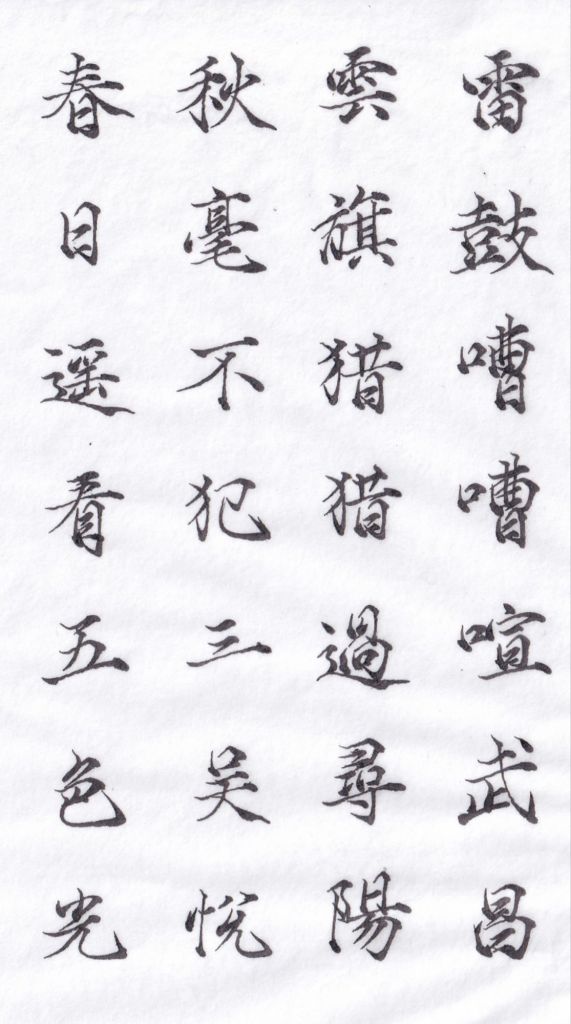 雷鼓嘈嘈喧武昌
雲旗猎猎過尋陽
秋毫不犯三吴悅
春日遥看五色光